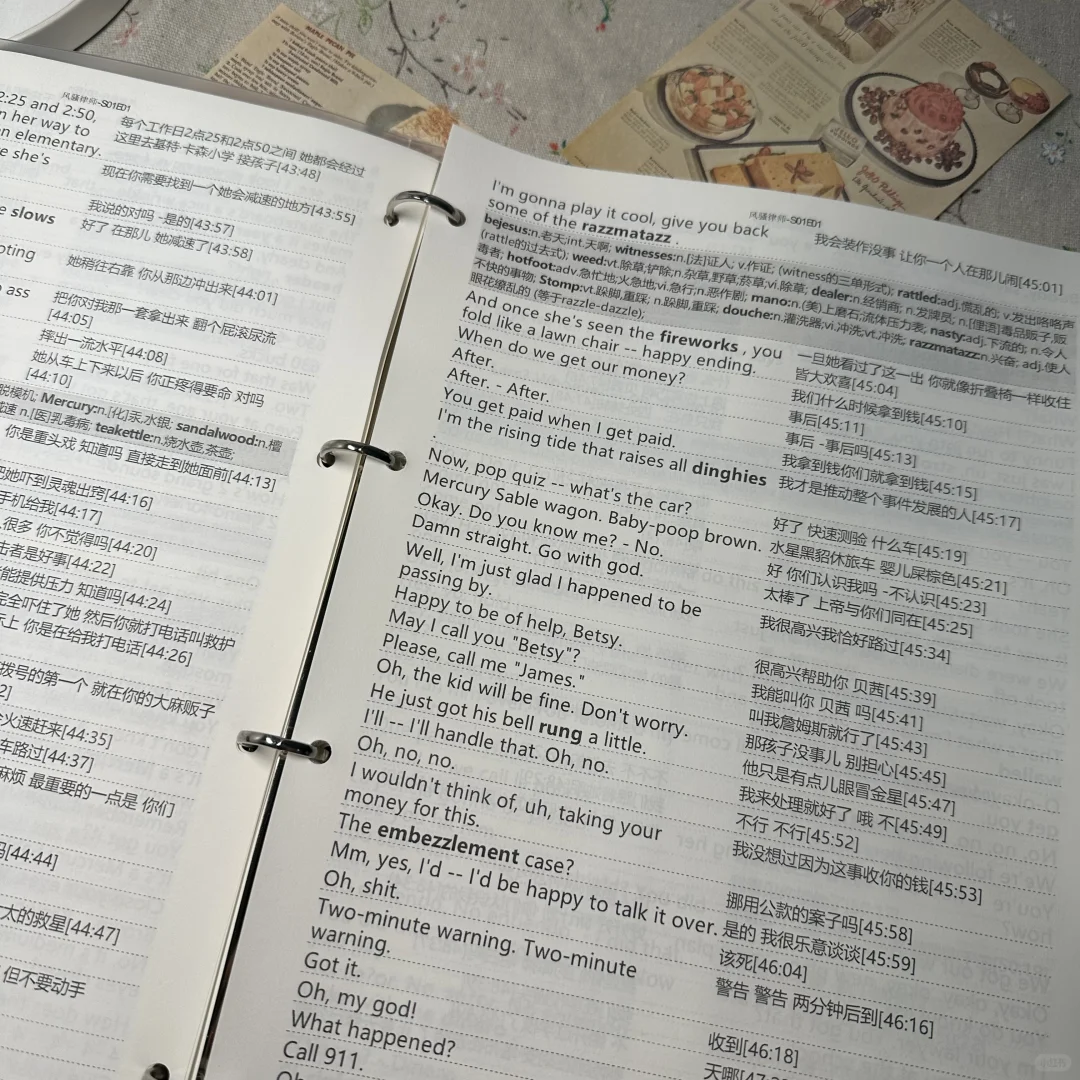 MAPLE PECAN PIE
风骚律师-S01E01
2:25 and 2:50,
n her way to
n elementary.
e she's
e slows
oting
n ass
每个工作日2点25和2点50之间 她都会经过
这里去基特·卡森小学 接孩子[43:48]
现在你需要找到一个她会减速的地方[43:55]
我说的对吗 -是的[43:57]
好了 在那儿 她减速了[43:58]
她稍往右靠 你从那边冲出来[44:01]
把你对我那一套拿出来 翻个屁滚尿流
[44:05]
摔出一流水平[44:08]
她从车上下来以后 你正疼得要命 对吗
[44:10]
脱模机; Mercury:n.[化]汞,水银, sandalwood:n.檀
减速 n.[医]乳毒病; teakettle:n.烧水壶,茶壶;
你是重头戏 知道吗 直接走到她面前[44:13]
把她吓到灵魂出窍[44:16]
手机给我[44:17]
很多 你不觉得吗[44:20]
击者是好事[44:22]
能提供压力 知道吗[44:24]
完全吓住了她 然后你就打电话叫救护
上 你是在给我打电话[44:26]
拨号的第一个 就在你的大麻贩子
2]
火速赶来[44:35]
车路过[44:37]
麻烦 最重要的一点是 你们
吗[44:44]
太的救星[44:47]
但不要动手
风骚律师-S01E01
I'm gonna play it cool, give you back
some of the razzmatazz .
我会装作没事 让你一个人在那儿闹[45:01]
bejesus:n.老天;int.天啊; witnesses:n.[法]证人; v.作证; (witness的三单形式); rattled:adj.慌乱的; v.发出咯咯声
(rattle的过去式); weed:vt.除草;铲除;n.杂草,野草;菸草;vi.除草; dealer:n.经销商; n.发牌员, n.[俚语]毒品贩子,贩
毒者; hotfoot:adv.急忙地;火急地;vi.急行;n.恶作剧; mano:n.(美)上磨石;流体压力表; nasty:adj.下流的; n.令人
不快的事物; Stomp:vt.跺脚,重踩; n.跺脚,重踩; douche:n.灌洗器;vi.冲洗;vt.冲洗, razzmatazz:n.兴奋; adj.使人
眼花缭乱的 (等于razzle-dazzle);
And once she's seen the fireworks , you
fold like a lawn chair -- happy ending.
一旦她看过了这一出 你就像折叠椅一样收住
皆大欢喜[45:04]
When do we get our money?
我们什么时候拿到钱[45:10]
After.
事后[45:11]
After. - After.
事后 -事后吗[45:13]
You get paid when I get paid.
我拿到钱你们就拿到钱[45:15]
I'm the rising tide that raises all dinghies
我才是推动整个事件发展的人[45:17]
Now, pop quiz -- what's the car?
好了 快速测验 什么车[45:19]
Mercury Sable wagon. Baby-poop brown.
水星黑貂休旅车 婴儿屎棕色[45:21]
Okay. Do you know me? - No.
好 你们认识我吗 -不认识[45:23]
Damn straight. Go with god.
太棒了 上帝与你们同在[45:25]
Well, I'm just glad I happened to be
passing by.
我很高兴我恰好路过[45:34]
Happy to be of help, Betsy.
很高兴帮助你 贝茜[45:39]
May I call you "Betsy"?
我能叫你 贝茜 吗[45:41]
Please, call me "James."
叫我詹姆斯就行了[45:43]
Oh, the kid will be fine. Don't worry.
那孩子没事儿 别担心[45:45]
He just got his bell rung a little.
他只是有点儿眼冒金星[45:47]
I'll -- I'll handle that. Oh, no.
我来处理就好了 哦 不[45:49]
Oh, no, no.
不行 不行[45:52]
I wouldn't think of, uh, taking your
money for this.
我没想过因为这事收你的钱[45:53]
The embezzlement case?
挪用公款的案子吗[45:58]
Mm, yes, I'd -- I'd be happy to talk it over.
是的 我很乐意谈谈[45:59]
Oh, shit.
该死[46:04]
Two-minute warning. Two-minute
warning.
警告 警告 两分钟后到[46:16]
Got it.
收到[46:18]
Oh, my god!
What happened?
Call 911.